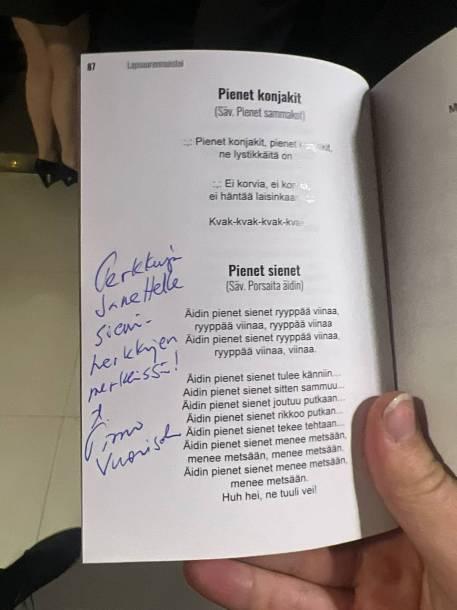 87
Lapsuurenmuistoi
Pienet konjakit
(Säv. Pienet sammakot)
:,: Pienet konjakit, pienet konjakit,
ne lystikkäitä on
:,: Ei korvia, ei korvia,
ei häntää laisinkaan
Kvak-kvak-kvak-kvak
Pienet sienet
(Säv. Porsaita äidin)
Äidin pienet sienet ryyppää viinaa,
ryyppää viinaa, ryyppää viinaa
Äidin pienet sienet ryyppää viinaa,
ryyppää viinaa, viinaa.
Äidin pienet sienet tulee känniin...
Äidin pienet sienet sitten sammuu...
Äidin pienet sienet joutuu putkaan...
Äidin pienet sienet rikkoo putkan...
Äidin pienet sienet tekee tehtaan...
Äidin pienet sienet menee metsään,
menee metsään, menee metsään.
Äidin pienet sienet menee metsään,
menee metsään.
Huh hei, ne tuuli vei!
Janettelle
sieni-
herkkujen
merkeissä!
M